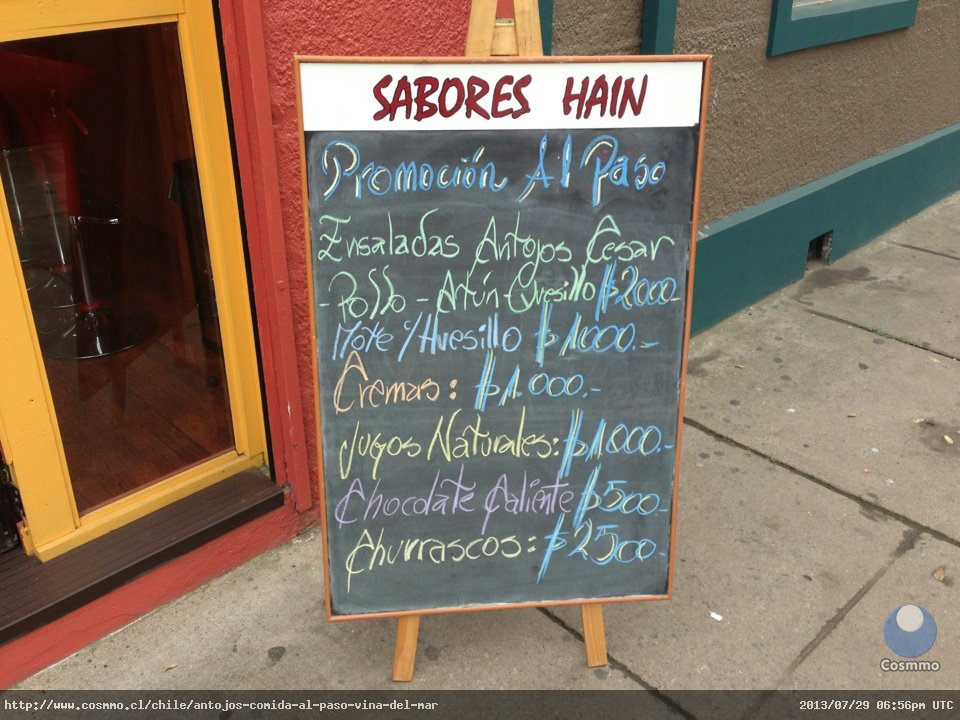 SABORES HAIN
Promoción Al Paso
Ensaladas Antojos Cesar
-Pollo - Atún Quesillo $2000.-
Mote c/Huesillo $1000.-
Cremas: $1.000.-
Jugos Naturales: $1000.-
Chocolate Caliente $500.-
Churrascos: $2500.-
Cosmmo
http://www.cosmmo.cl/chile/antojos-comida-al-paso-vina-del-mar
2013/07/29 06:56pm UTC